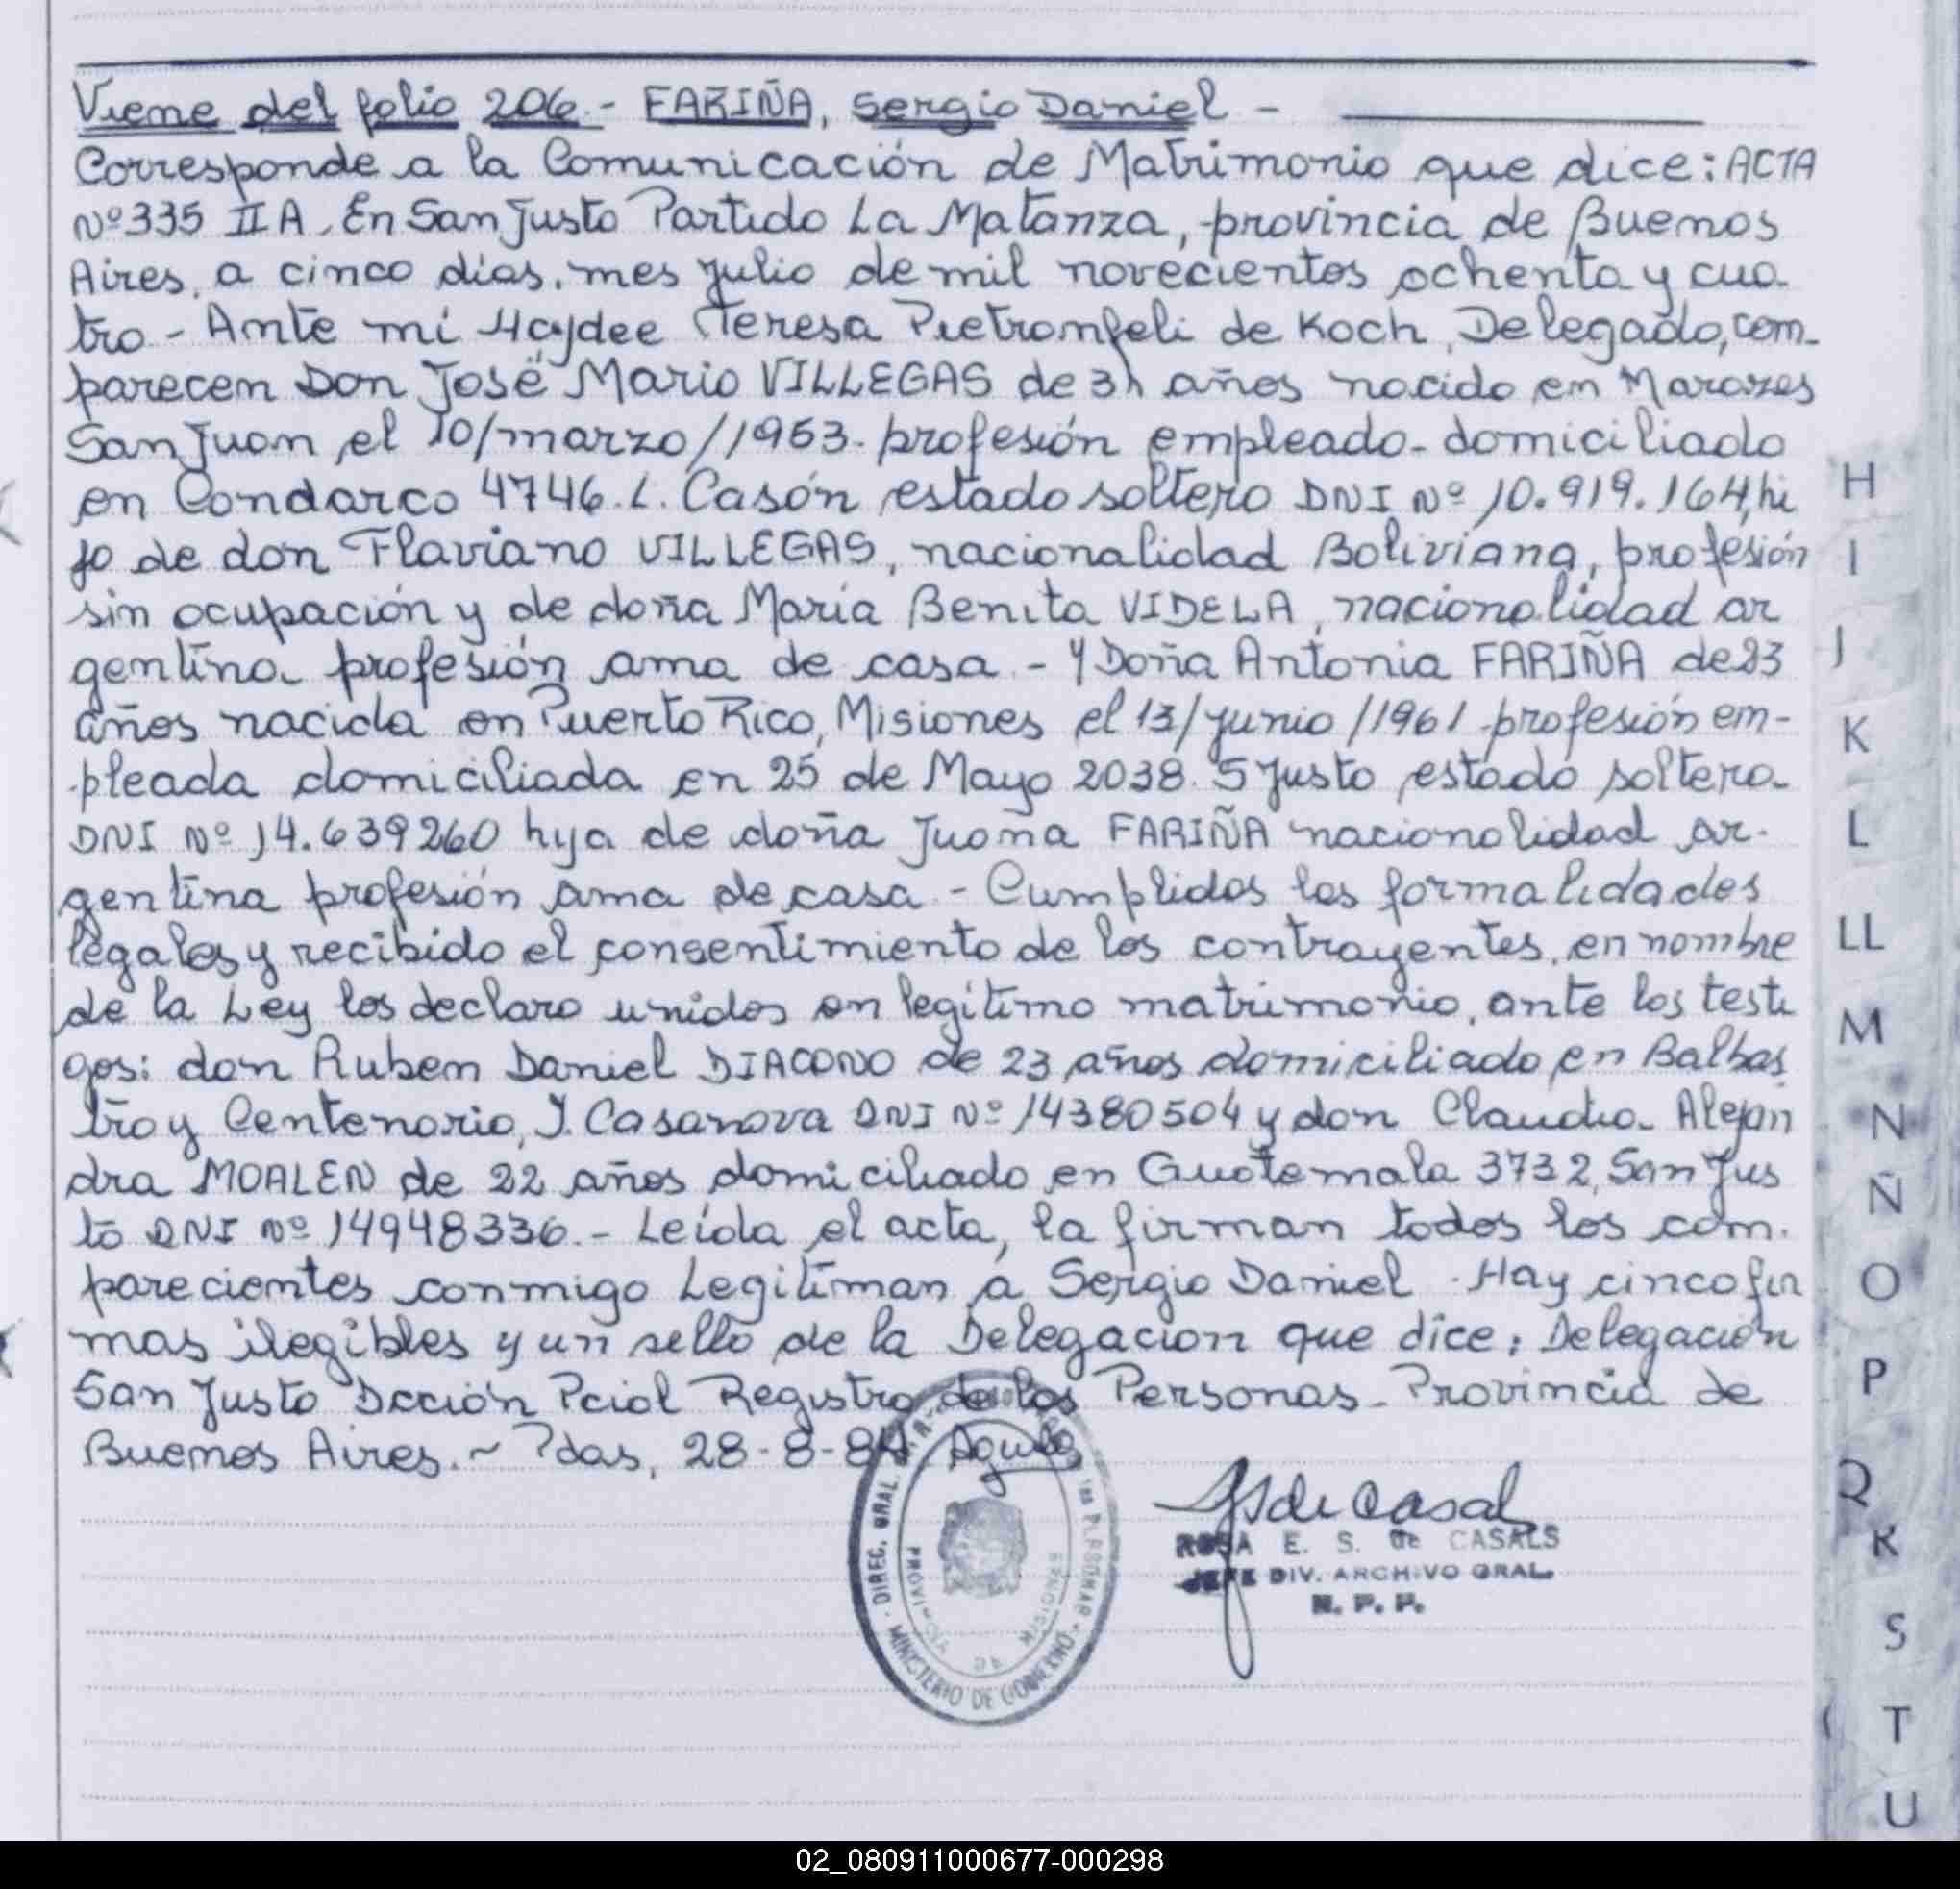 Viene del folio 206.- FARIÑA, Sergio Daniel -
Corresponde a la Comunicación de Matrimonio que dice: ACTA
Nº 335 II A. En San Justo Partido La Matanza, provincia de Buenos
Aires, a cinco días, mes Julio de mil novecientos ochenta y cua-
tro - Ante mí Haydee Teresa de Koch, Delegado, com-
parecen Don José Mario VILLEGAS de años nacido en
San Juan el 10/marzo/1953- profesión empleado- domiciliado
en Condarco 4746. L. Casón estado soltero DNI Nº 10.919.164, hi
jo de don Flaviano VILLEGAS, nacionalidad Boliviana, profesión
sin ocupación y de doña María Benita VIDELA, nacionalidad ar
gentina profesión ama de casa - y Doña Antonia FARIÑA de 23
años nacida en Puerto Rico, Misiones el 13/junio/1961 profesión em-
pleada domiciliada en 25 de Mayo 2038. S Justo estado soltera-
DNI Nº 14.639260 hija de doña Juana FARIÑA nacionalidad ar-
gentina profesión ama de casa - Cumplidas las formalidades
legales y recibido el consentimiento de los contrayentes, en nombre
de la Ley los declaro unidos en legítimo matrimonio, ante los testi
gos: don Ruben Daniel DIACONO de 23 años domiciliado en Balbas
tro y Centenario, I. Casanova DNI Nº 14380504 y don Claudio Alejan
dra MOALEN de 22 años domiciliado en Guatemala 3732, San Jus
to DNI Nº 14948336.- Leída el acta, la firman todos los com-
parecientes conmigo Legitiman a Sergio Daniel - Hay cinco fir
mas ilegibles y un sello de la Delegación que dice: Delegación
San Justo Dcción Pcial Registro de las Personas- Provincia de
Buenos Aires.- Pdas, 28-8-84
DIREC. GRAL.
PROVINCIA DE MISIONES
MINISTERIO DE GOBIERNO
ROSA E. S. de CASALS
JEFE DIV. ARCHIVO GRAL.
R. P. P.
H
I
J
K
L
LL
M
N
Ñ
O
P
Q
R
S
T
U
02_080911000677-000298